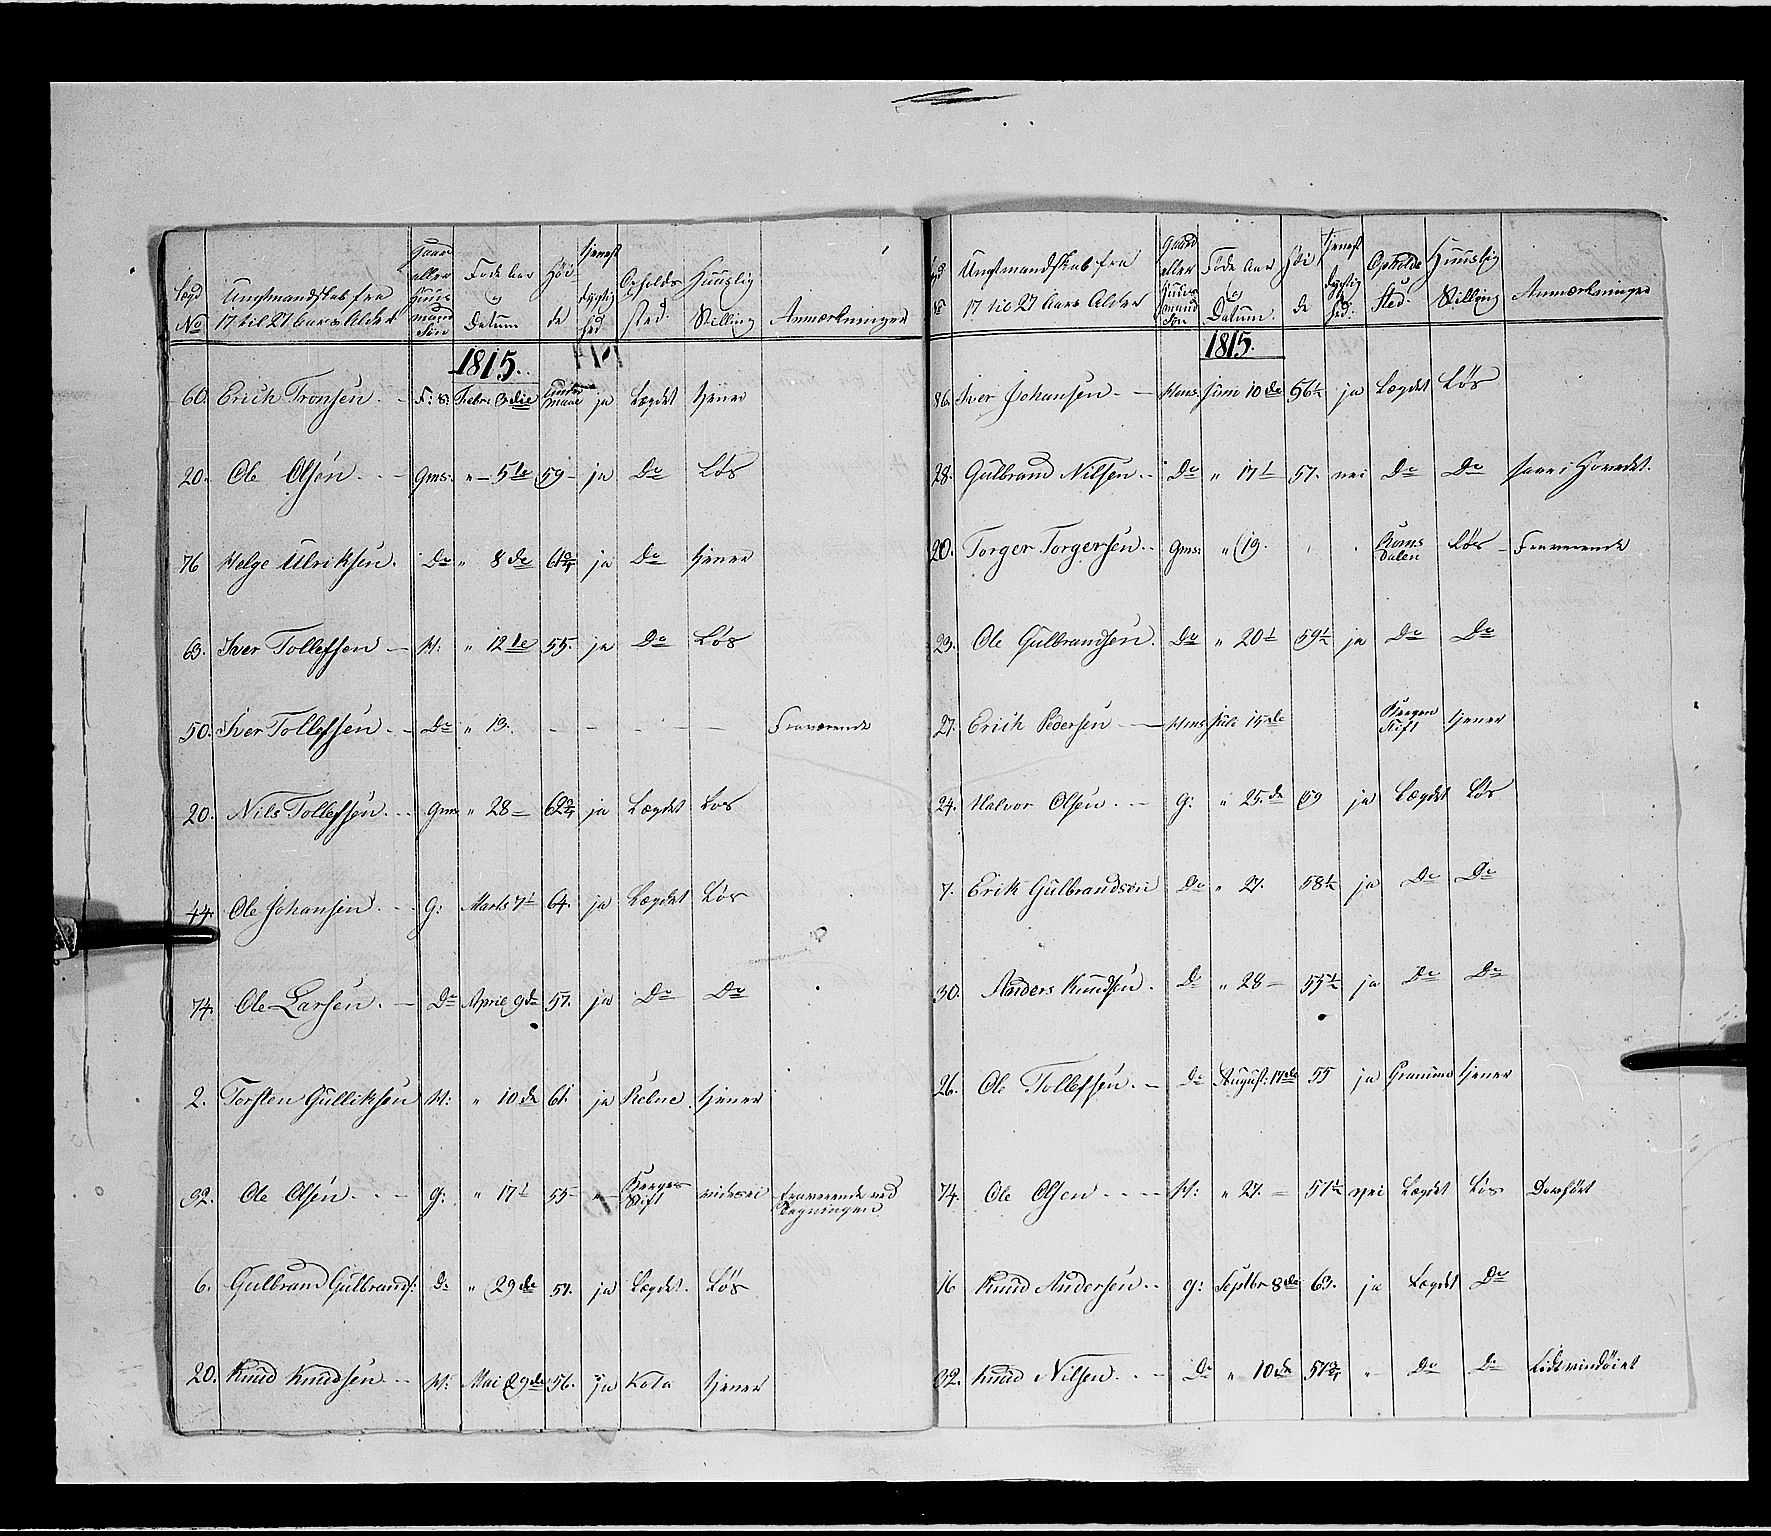 Lægd No | Ungtmandskab fra 17 til 21 Aars Alder | Gaard eller Huusmand Søn | Føde Aar og Datum | Høide | tjenestdygtighed | Opholdssted | Huuslig Stilling | Anmærkninger
1815.
60. Erich Tronsen. — F: S: Febr: 3die ja Lægdet tjener
20. Ole Olsen . . — Gms: „ — 5te 59 – ja Do Løs
76 Helge Ulriksen. Do „ 8de 61 3/4 ja Do tjener
63. Iver Tollefsen — H: „ 12te 55. ja Do Løs
50. Iver Tollefsen. — Do „ 13. — — — — — Fraværende
20. Nils Tollefsen . . . Gms „ 28 – 62 3/4 ja Lægdet Løs
44. Ole Johansen . . — G: Marts 7d 64. ja Lægdet Løs
74. Ole Larsen . — Do April 9de 57. ja Do Do
2. Torsten Gulliksen H: „ 10de 61. ja tjener
32. Ole Olsen . . — G: „ 17d 55 „ Bergens Stift Fraværende ved
6. Gulbrand Gulbrands: Do „ 29de 57. ja Lægdet. Løs
20. Knud Knudsen . — H: Mai 29de 56. ja tjener
Lægd No | Ungtmandskab fra 17 til 27 Aars Alder | Gaard eller Huusmand Søn | Føde Aar og Datum. | Høide | tjenestdygtighed: | Opholds Sted: | Huuslig Stilling | Anmærkninger
1815.
86. Iver Johansen — Hms. Juni 10de 56 1/2 ja Lægdet Løs
28. Gulbrand Nilsen . – Do „ 17d 57. nei Do Do saar i Hovedet.
20. Torger Torgersen . . Gms: „ 19. Roms Dalen Løs – Fraværende
23. Ole Gulbrandsen . Do „ 20d 59 1/2 ja Do Do
27. Erich Pedersen — Hms Juli 15de Bergen Stift tjener
24. Halvor Olsen . . — G: „ 25.de 59 ja Lægdet Løs
7. Erik Gulbrandsen Do „ 27. 58 1/2 ja Do Do
30. Anders Knudsen . Do „ 28 – 55 1/2 ja Do Do
26. Ole Tollefsen . — Do August: 17de 55 ja tjener
74. Ole Olsen . . — — H: „ 27. – 57 1/2 nei Lægdet Løs
16 Knud Andersen . . G: Septbr 8de 63. ja Lægdet Do
32. Knud Nilsen . . — Do „ 10de 57 3/4 „ Do Do